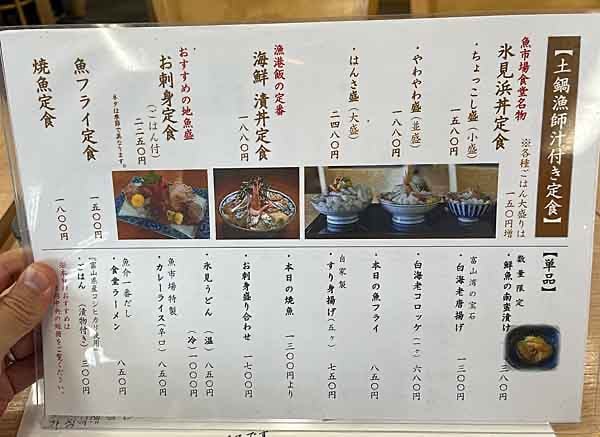 【土鍋漁師汁付き定食】
※各種ごはん大盛りは
一五〇円増
魚市場食堂名物
氷見浜丼定食
・ちょっこし盛（小盛）
一五八〇円
・やわやわ盛（並盛）
一八八〇円
・はんさ盛（大盛）
二四八〇円
漁港飯の定番
海鮮 漬丼定食
一八八〇円
おすすめの地魚盛
お刺身定食
（ごはん付）
二二五〇円
ネタは季節で異なります。
魚フライ定食
一五〇〇円
焼魚定食
一八〇〇円
【単品】
数量限定
・鮮魚の南蛮漬け
三八〇円
富山湾の宝石
・白海老唐揚げ
一三〇〇円
・白海老コロッケ（一ヶ）
六八〇円
・本日の魚フライ
八五〇円
自家製
・すり身揚げ（五ヶ）
七五〇円
・本日の焼魚
一三〇〇円より
・お刺身盛り合わせ
一七〇〇円
・氷見うどん（温）八五〇円
（冷）一〇〇〇円
魚市場特製
・カレーライス（辛口）八五〇円
魚介一番だし
・食堂ラーメン
八五〇円
『富山県産コシヒカリ使用』
・ごはん（漬物付き）三〇〇円